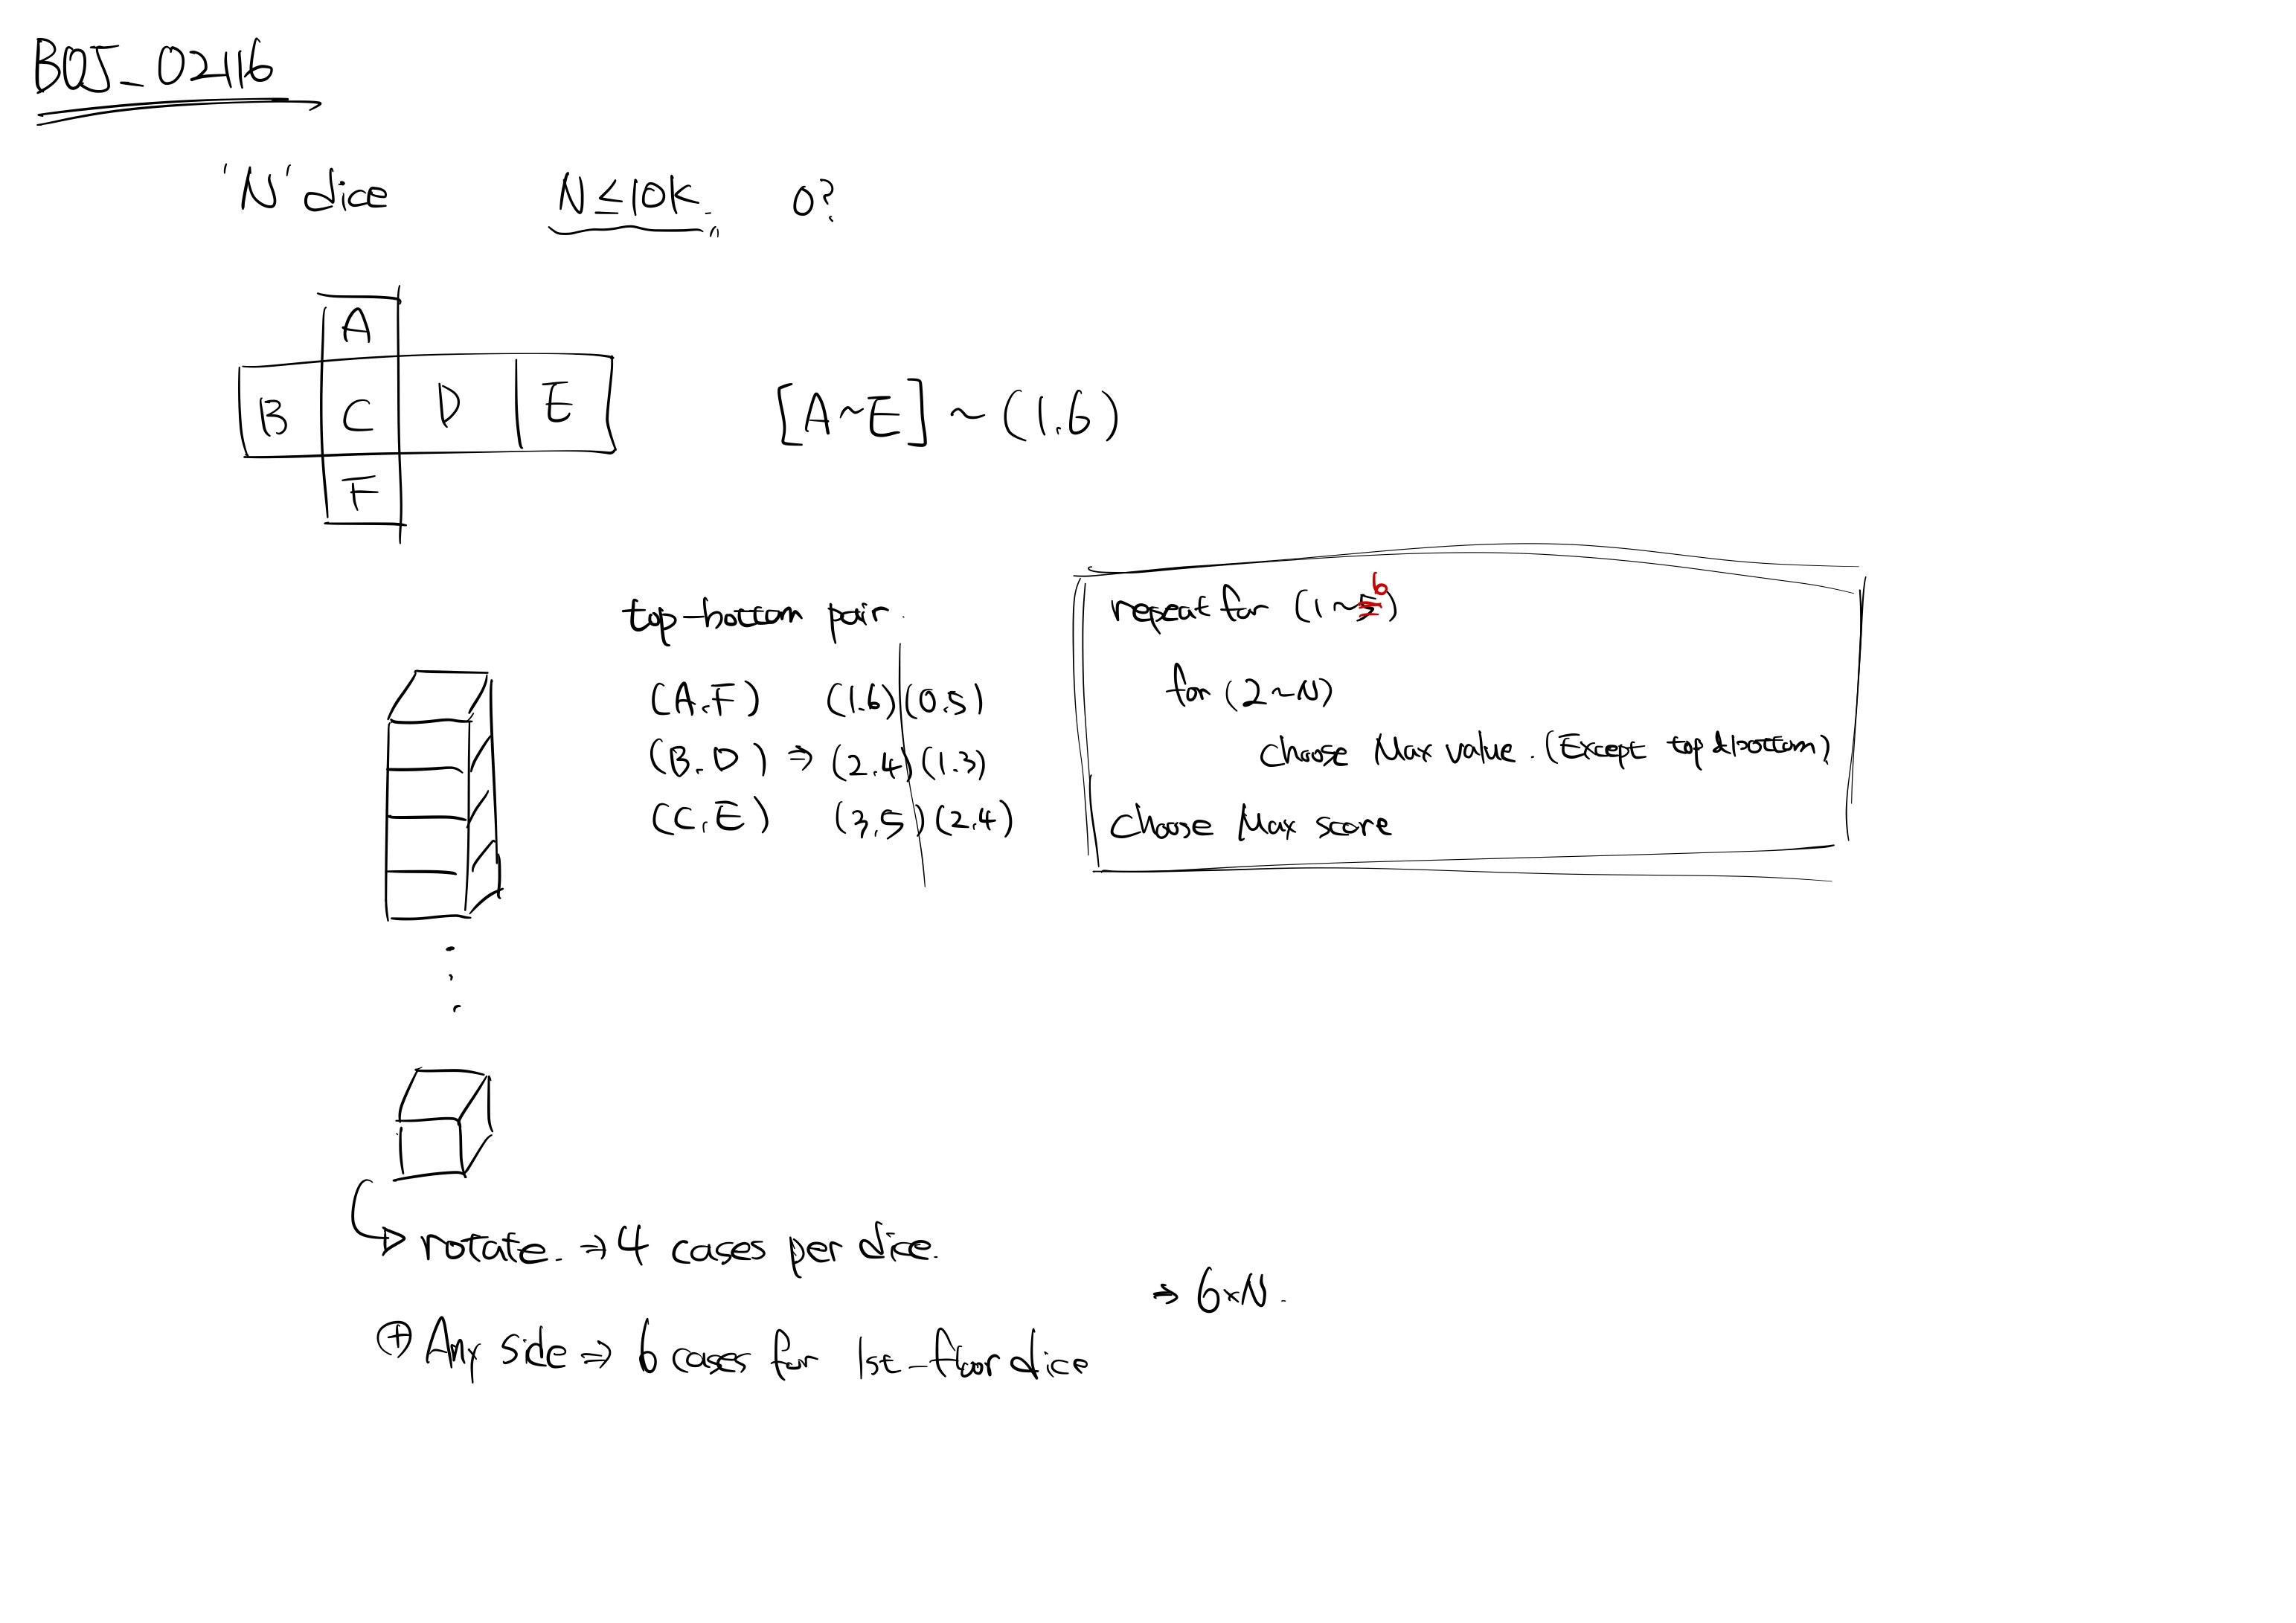 BOJ_02116
'N' dice N≤10K. 0?
A
B C D E
F
[A~E] ~ (1.6)
top-bottom pair.
(A.F) (1.6) (0.5)
(B.D) ⇒ (2.4) (1.3)
(C.E) (3.5) (2.4)
repeat for (1~5 6)
for (2~N)
choose Max value. (Except top&bottom)
Choose Max score
rotate. ⇒ 4 cases per dice.
⇒ 6×N.
⊕ Any side ⇒ 6 cases for 1st-floor dice